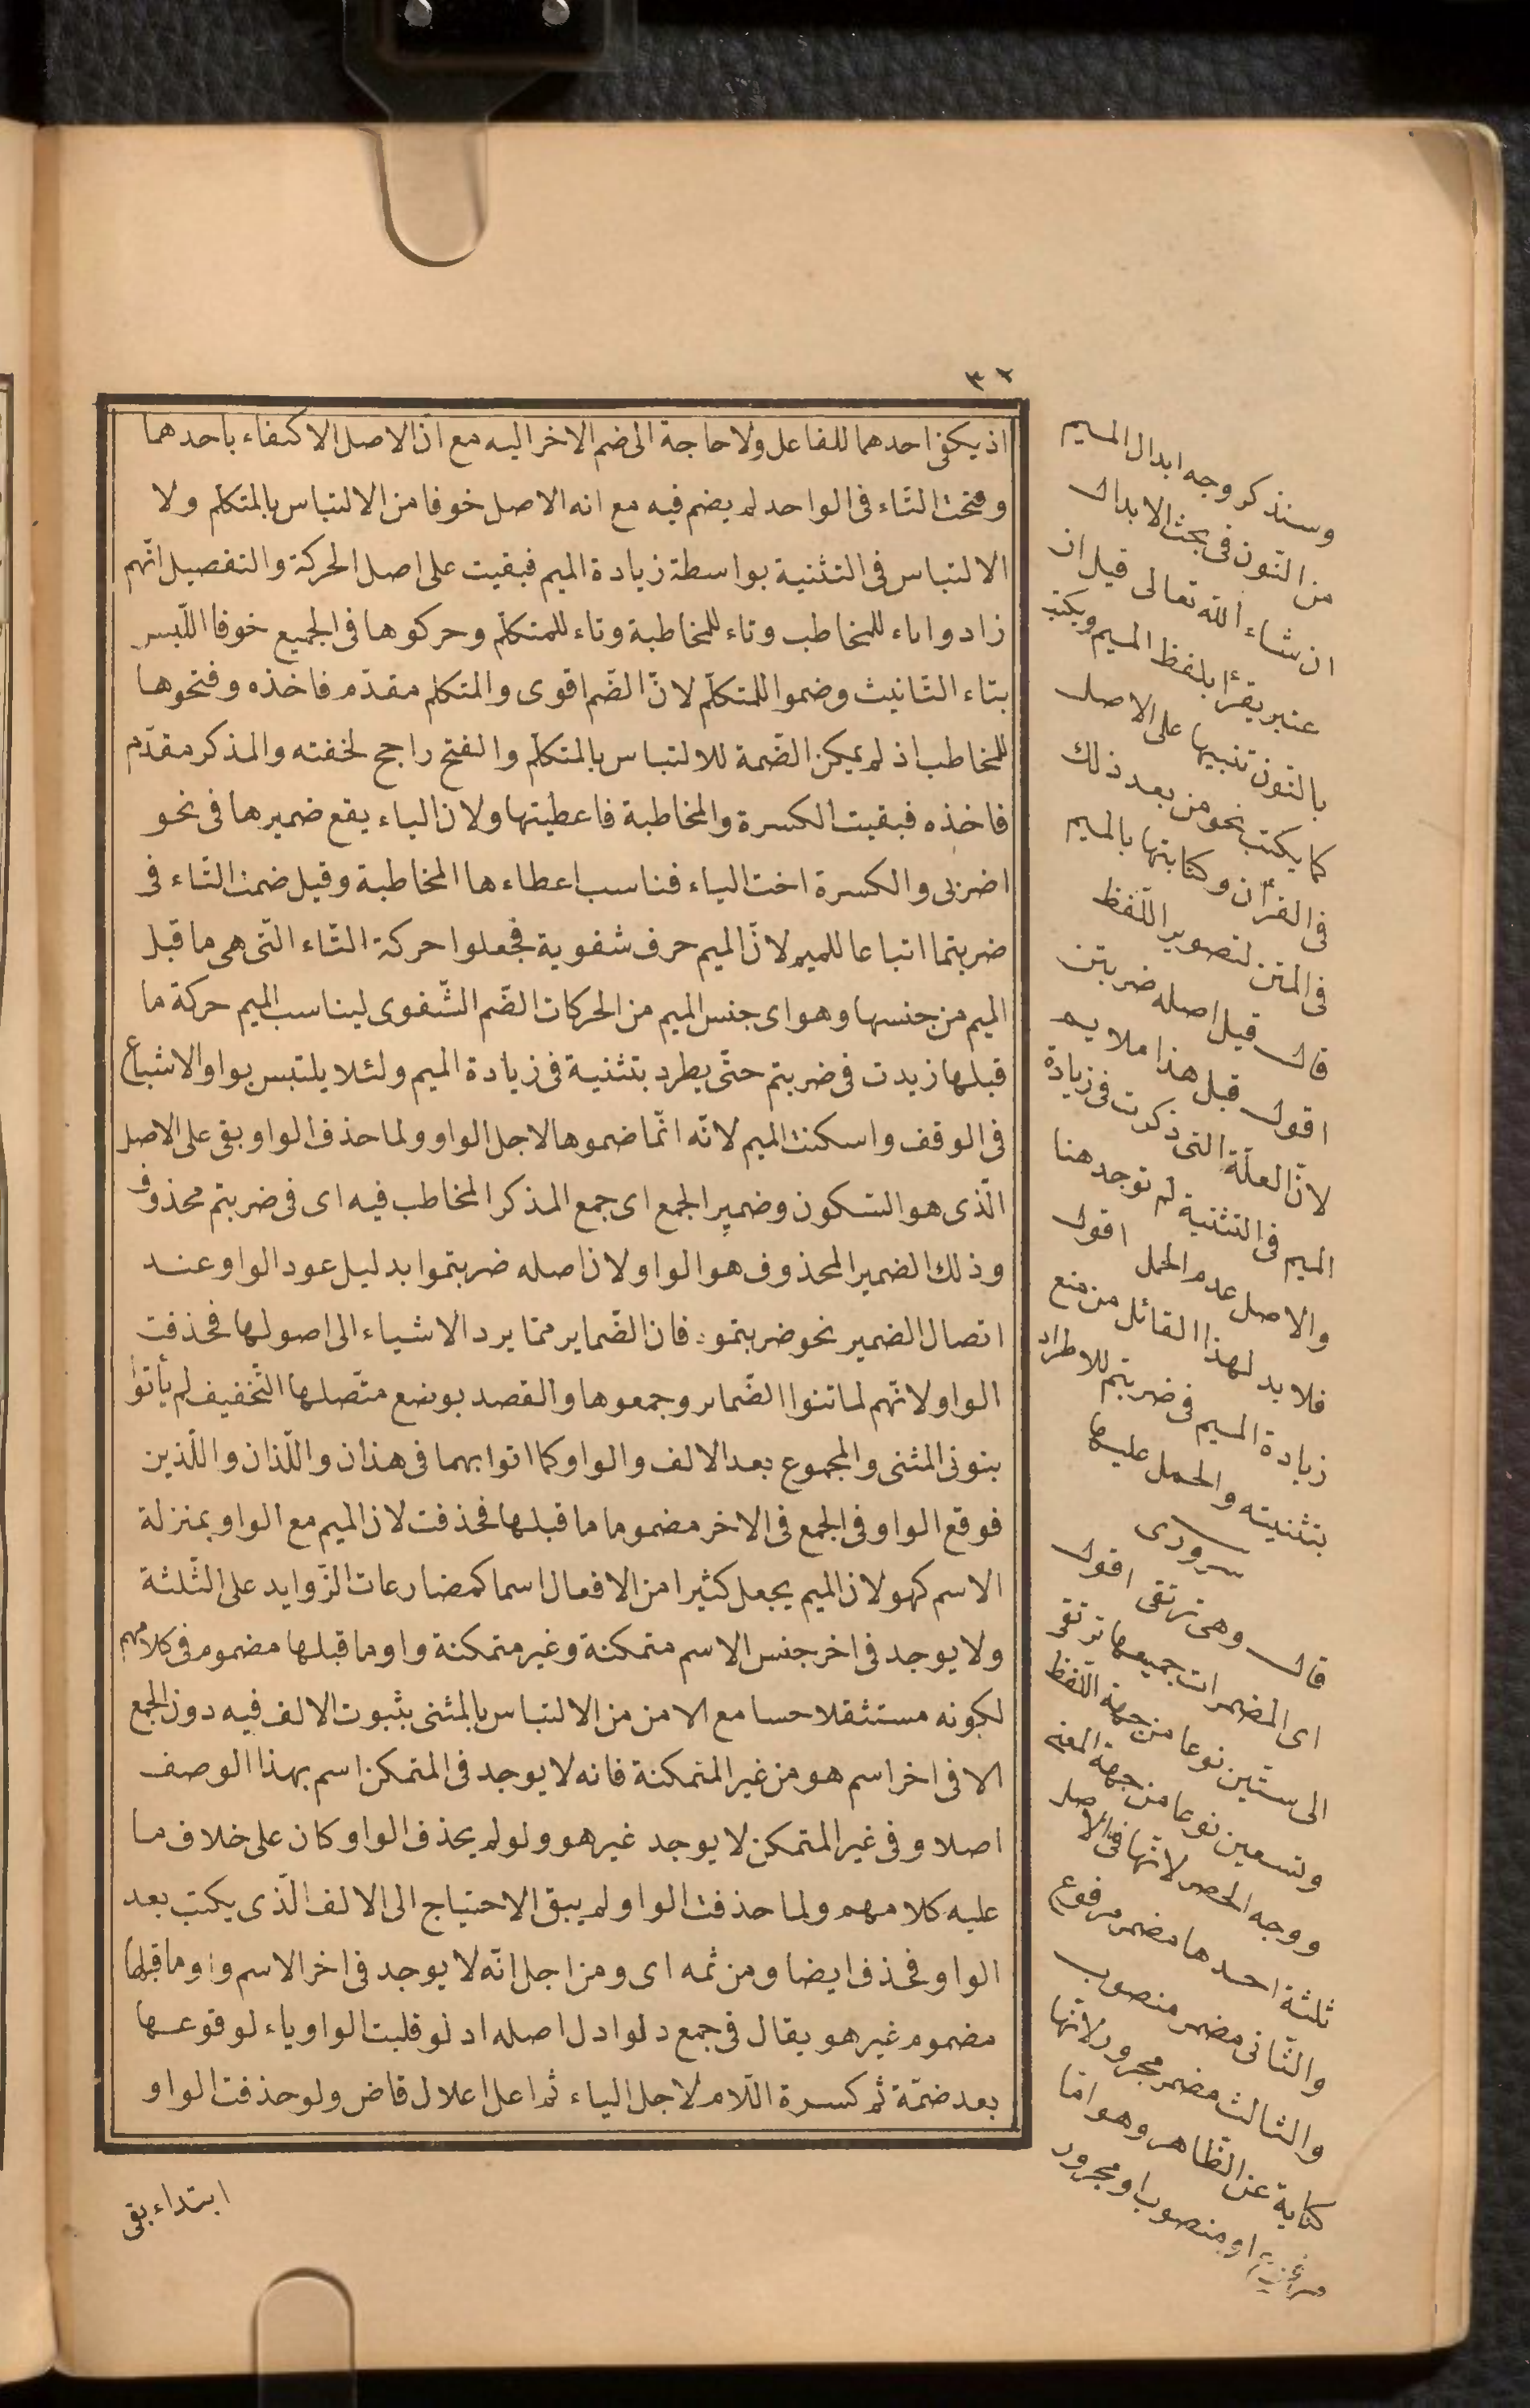 ٣٢
اذ يكفى احدهما للفاعل ولا حاجة الى ضم الاخر اليه مع انّ الاصل الاكتفاء باحدهما
وفتحت التّاء فى الواحد لم يضم فيه مع انه الاصل خوفا من الالتباس بالمتكلّم ولا
الالتباس فى التثنية بواسطة زيادة الميم فبقيت على اصل الحركة والتفصيل انّهم
زادوا تاء للمخاطب وتاء للمخاطبة وتاء للمتكلّم وحركوها فى الجميع خوفا اللّبس
بتاء التّانيث وضموا للمتكلّم لانّ الضّم اقوى والمتكلم مقدّم فاخذه وفتحوها
للمخاطب اذ لم يمكن الضّمة للالتباس بالمتكلّم والفتح راجح لخفته والمذكر مقدّم
فاخذه فبقيت الكسرة والمخاطبة فاعطيتها ولان الياء يقع ضميرها فى نحو
اضربى والكسرة اخت الياء فناسب اعطاءها المخاطبة وقيل ضمت التّاء فى
ضربتما اتباعا للميم لانّ الميم حرف شفوية فجعلوا حركة التّاء التّى هى ما قبل
الميم من جنسها وهو اى جنس الميم من الحركات الضّم الشّفوى ليناسب الميم حركة ما
قبلها زيدت فى ضربتم حتّى يطرد بتثنية فى زيادة الميم ولئلا يلتبس بواو الاشباع
فى الوقف واسكنت الميم لانّه انّما ضموها لاجل الواو ولما حذف الواو بقى على الاصل
الّذى هو السّكون وضمير الجمع اى جمع المذكر المخاطب فيه اى فى ضربتم محذوف
وذلك الضمير المحذوف هو الواو لان اصله ضربتموا بدليل عود الواو عند
اتصال الضمير نحو ضربتموه فان الضّماير ممّا يرد الاشياء الى اصولها فحذفت
الواو لانّهم لما ثنوا الضّماير وجمعوها والقصد بوضع متّصلها التّخفيف لم يأتوا
بنونى المثنى والمجموع بعد الالف والواو كما اتوا بهما فى هذان واللّذان واللّذين
فوقع الواو فى الجمع فى الاخر مضموما ما قبلها فحذفت لان الميم مع الواو بمنزلة
الاسم كهو لان الميم يجعل كثيرا من الافعال اسما كمضارعات الزّوايد على الثّلثة
ولا يوجد فى اخر جنس الاسم متمكنة وغير متمكنة واو ما قبلها مضموم فى كلامهم
لكونه مستثقلا حسا مع الامن من الالتباس بالمثنى بثبوت الالف فيه دون الجمع
الا فى اخر اسم هو من غير المتمكنة فانه لا يوجد فى المتمكن اسم بهذا الوصف
اصلا وفى غير المتمكن لا يوجد غير هو ولو لم يحذف الواو كان على خلاف ما
عليه كلامهم ولما حذفت الواو لم يبق الاحتياج الى الالف الّذى يكتب بعد
الواو فحذف ايضا ومن ثمه اى ومن اجل انّه لا يوجد فى اخر الاسم واو ما قبلها
مضموم غير هو يقال فى جمع دلو ادل اصله ادلو قلبت الواو ياء لوقوعها
بعد ضمّة ثم كسرة اللّام لاجل الياء ثم اعل اعلال قاض ولو حذفت الواو
ابتداء بقى
وسنذكر وجه ابدال الميم
من النّون فى بحث الابدال
ان شاء الله تعالى قيل ان
عنبر يقرأ بلفظ الميم ويكتب
بالنّون تنبيها على الاصل
كما يكتب نحو من بعد ذلك
فى القرآن وكتابتها بالميم
فى المتن لتصوير اللّفظ
قال قيل اصله ضربتن
اقول قبل هذا ملايم
لانّ العلّة التى ذكرت فى زيادة
الميم فى التثنية لم توجد هنا
والاصل عدم الحمل اقول
فلابد لهذا القائل من منع
زيادة الميم فى ضربتم للاطراد
بتثنيته والحمل عليها
سرورى
قال وهى ترتقى اقول
اى المضمرات جميعها ترتقى
الى ستّين نوعا من جهة اللّفظ
وتسعين نوعا من جهة المعنى
ووجه الحصر لانّها فى الاصل
ثلثة احدها مضمر مرفوع
والثّانى مضمر منصوب
والثالث مضمر مجرور لانّها
كناية عن الظّاهر وهو امّا
مرفوع او منصوب او مجرور